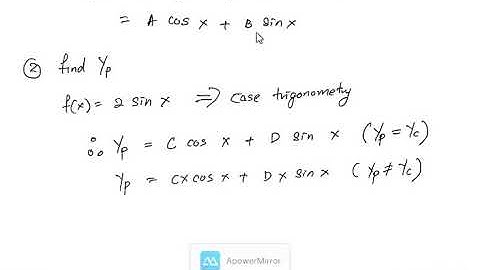 = A cos x + B sin x
② find Yp
f(x) = 2 sin x ⇒ case trigonometry
∴ Yp = C cos x + D sin x (Yp = Yc)
Yp = Cx cos x + Dx sin x (Yp ≠ Yc)
ApowerMirror